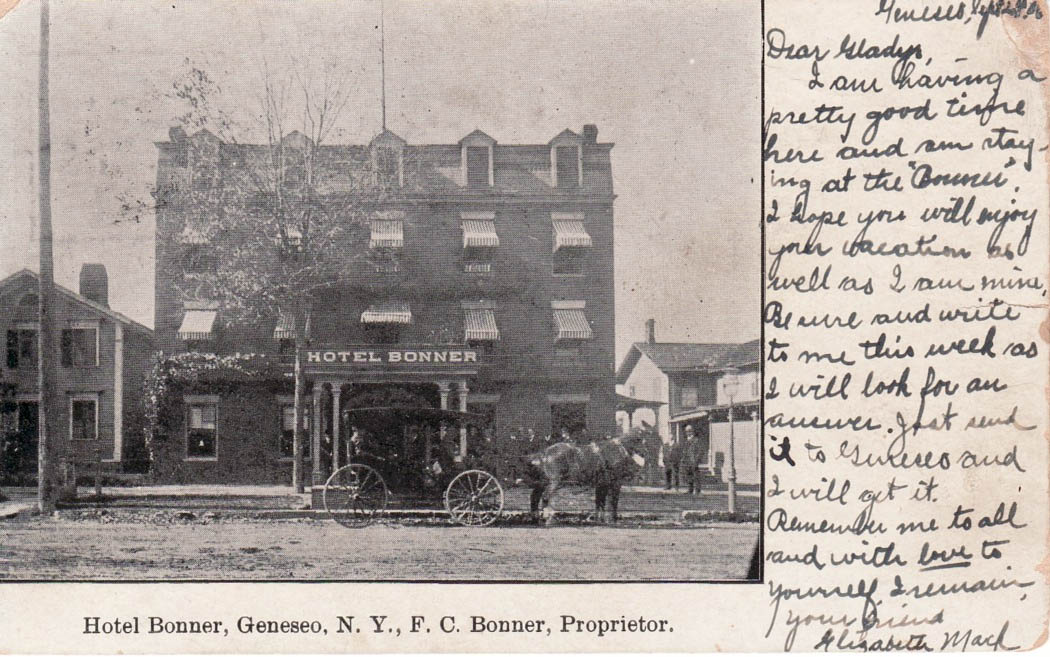 HOTEL BONNER
Hotel Bonner, Geneseo, N. Y., F. C. Bonner, Proprietor.
Geneseo,
Dear Gladys,
I am having a
pretty good time
here and am stay-
ing at the "Bonner".
I hope you will enjoy
your vacation as
well as I am mine.
Be sure and write
to me this week as
I will look for an
answer. Just send
it to Geneseo and
I will get it.
Remember me to all
and with love to
yourself, I remain,
your friend
Elizabeth Mack